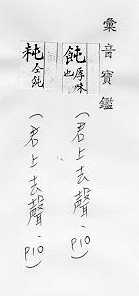 彙音寶鑑
飩厚味也
(君上去聲·P10)
䊎仝飩
(君上去聲·P10)